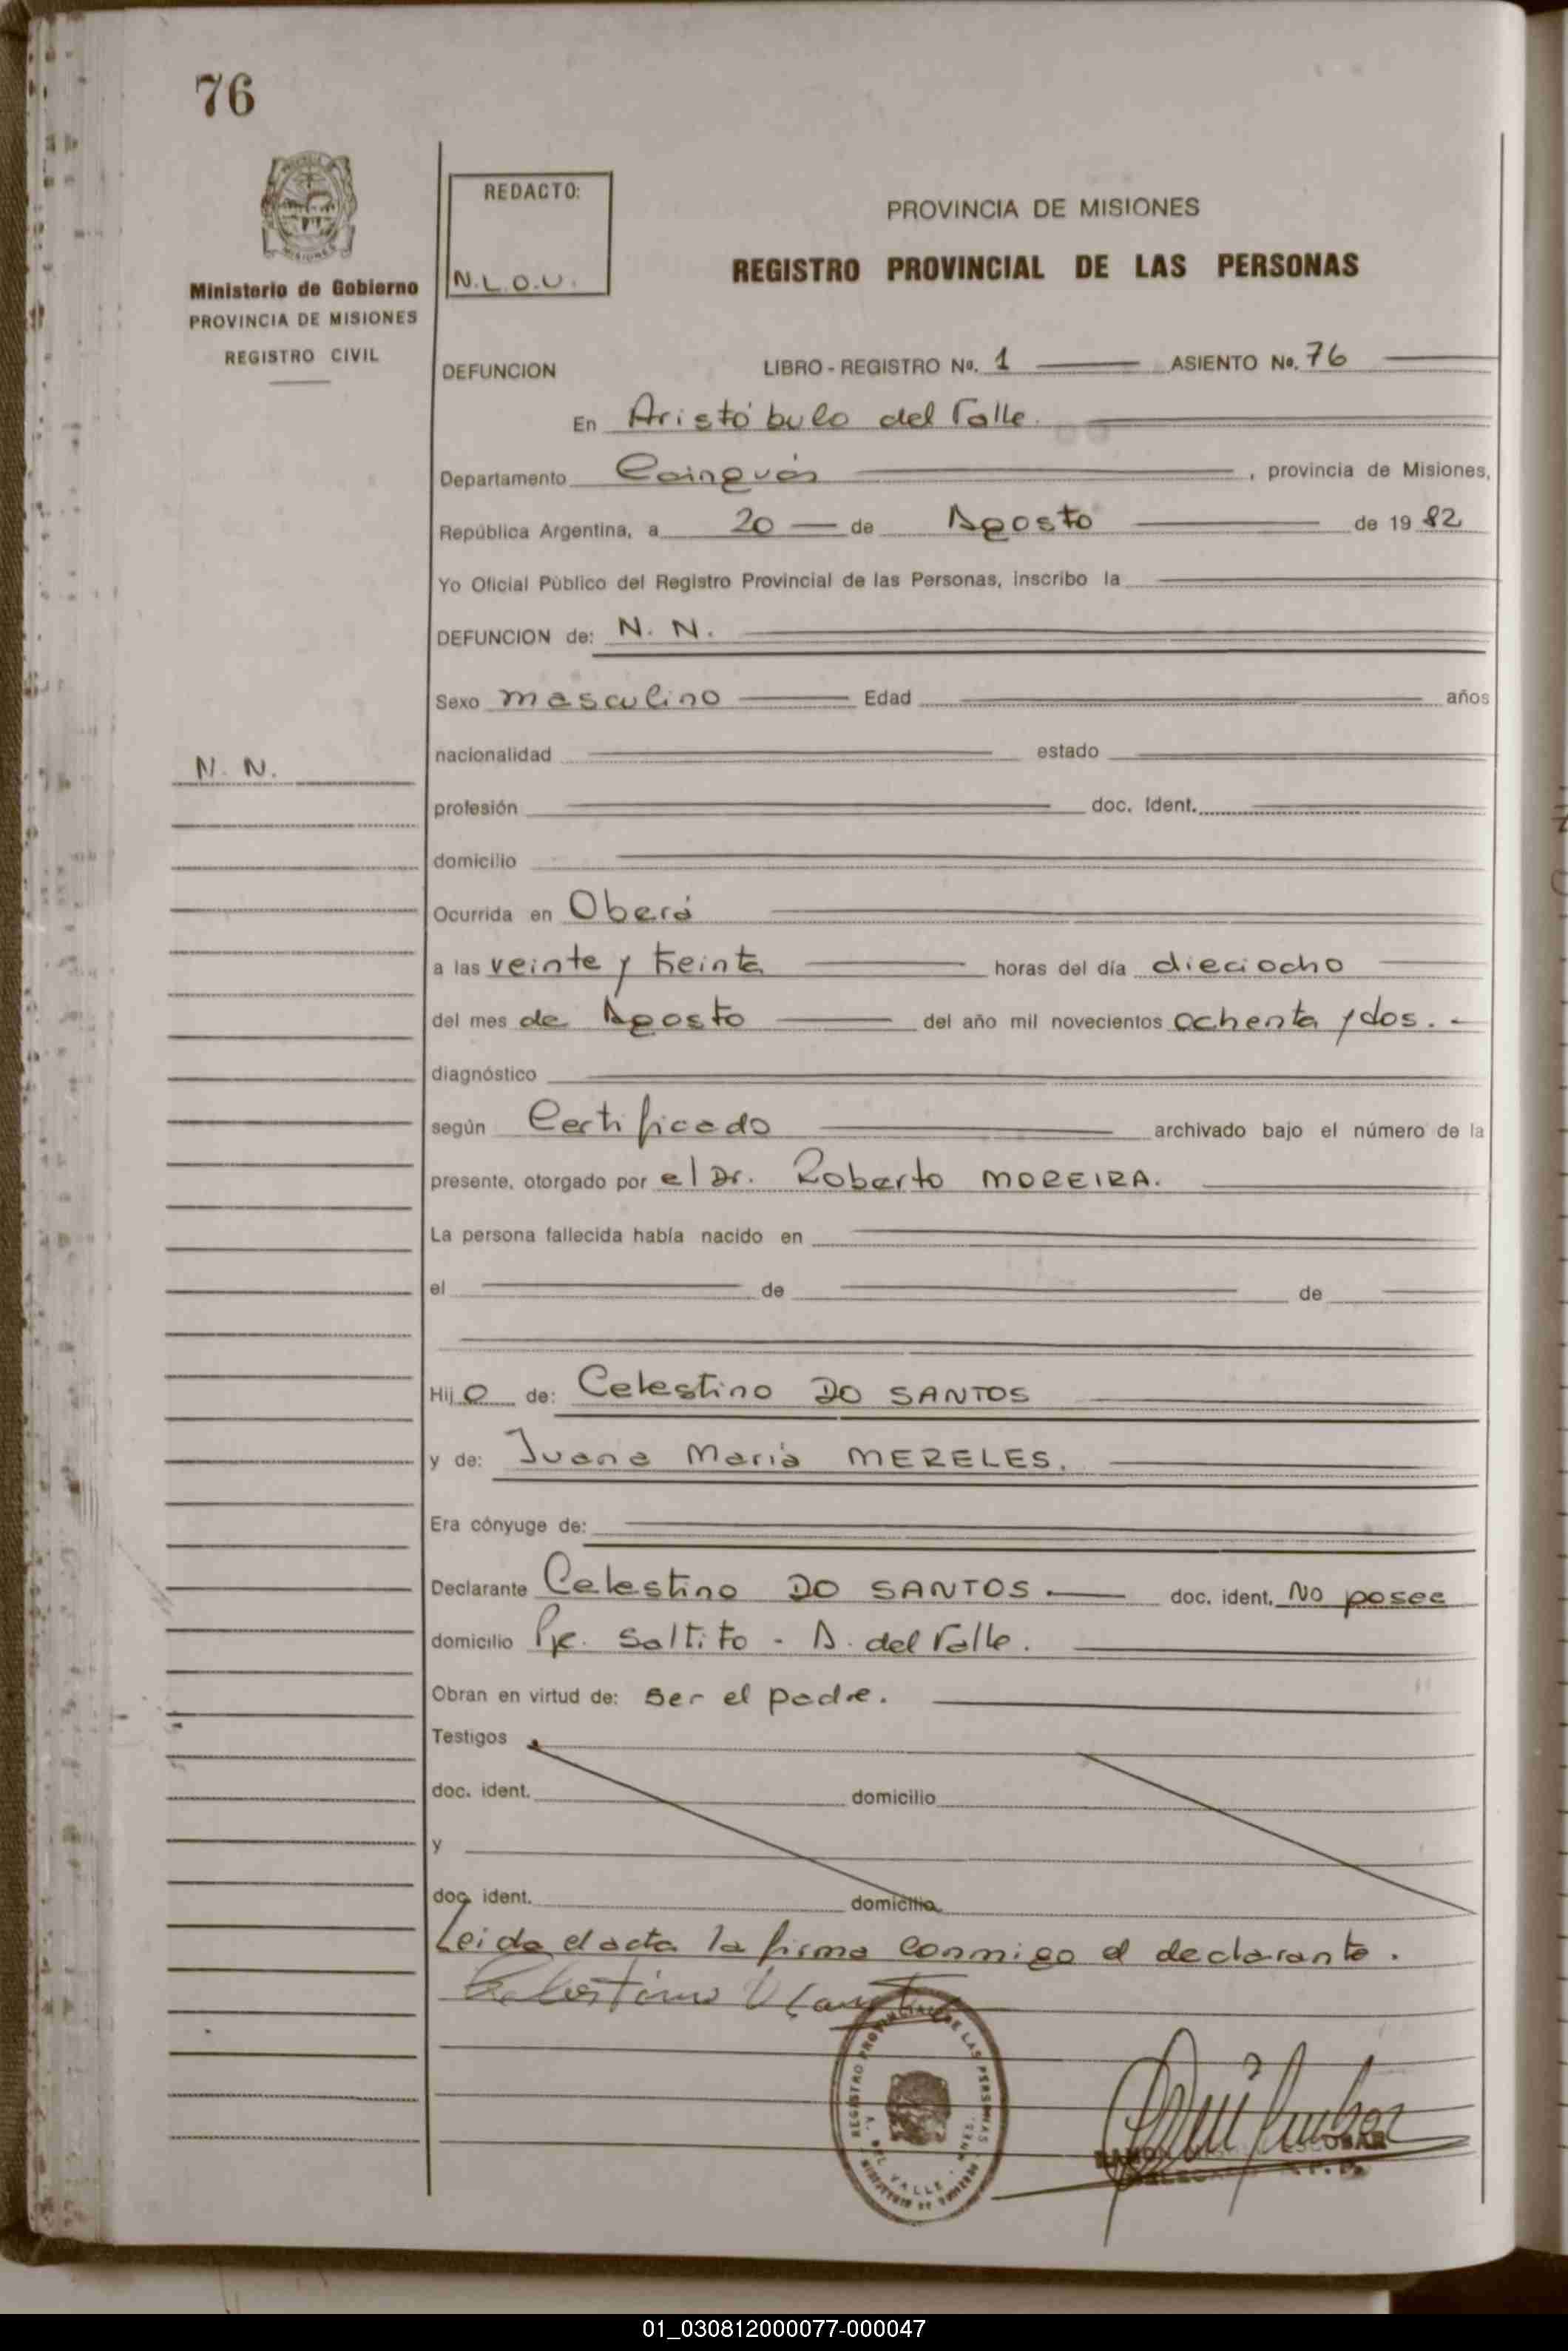 76
MISIONES
Ministerio de Gobierno
PROVINCIA DE MISIONES
REGISTRO CIVIL
REDACTO:
N.L.O.U.
PROVINCIA DE MISIONES
REGISTRO PROVINCIAL DE LAS PERSONAS
DEFUNCION LIBRO - REGISTRO No. 1 ASIENTO No. 76
En Aristóbulo del Valle.
Departamento Cainguás, provincia de Misiones,
República Argentina, a 20 de Agosto de 19 82
Yo Oficial Público del Registro Provincial de las Personas, inscribo la
DEFUNCION de: N. N.
Sexo masculino Edad años
N. N.
nacionalidad estado
profesión doc. Ident.
domicilio
Ocurrida en Oberá
a las veinte y treinta horas del día dieciocho
del mes de Agosto del año mil novecientos ochenta y dos. -
diagnóstico
según Certificado archivado bajo el número de la
presente, otorgado por el Dr. Roberto MOREIRA.
La persona fallecida había nacido en
el de de
Hijo de: Celestino DO SANTOS
y de: Juana María MERELES.
Era cónyuge de:
Declarante Celestino DO SANTOS. doc. ident. No posee
domicilio Pje. Saltito - A. del Valle.
Obran en virtud de: ser el padre.
Testigos
doc. ident. domicilio
y
doc. ident. domicilio
Leida el acta la firma conmigo el declarante.
REGISTRO PROVINCIAL DE LAS PERSONAS
A. DEL VALLE - MNES.
MINISTERIO DE GOBIERNO
RAMON ESCOBAR
01_030812000077-000047